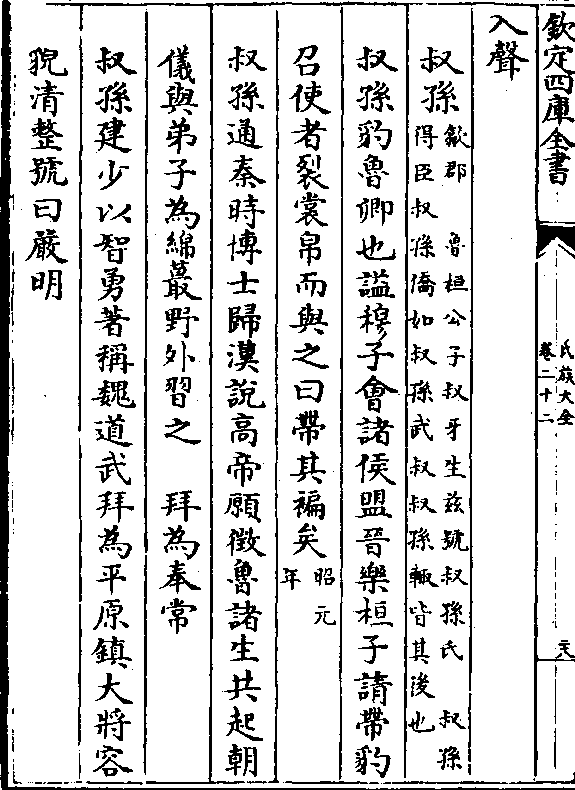 欽定四庫全書
氏族大全
卷二十二
六
入聲
叔孫歙郡 魯桓公子叔牙生兹號叔孫氏 叔孫
得臣叔孫僑如叔孫武叔叔孫輒皆其後也
叔孫豹魯卿也諡穆子會諸侯盟晉樂桓子請帶豹
召使者裂裳帛而與之曰帶其褊矣昭元
年
叔孫通秦時博士歸漢說高帝願徵魯諸生共起朝
儀與弟子為綿蕞野外習之 拜為奉常
叔孫建少以智勇著稱魏道武拜為平原鎮大將容
貌清整號曰嚴明